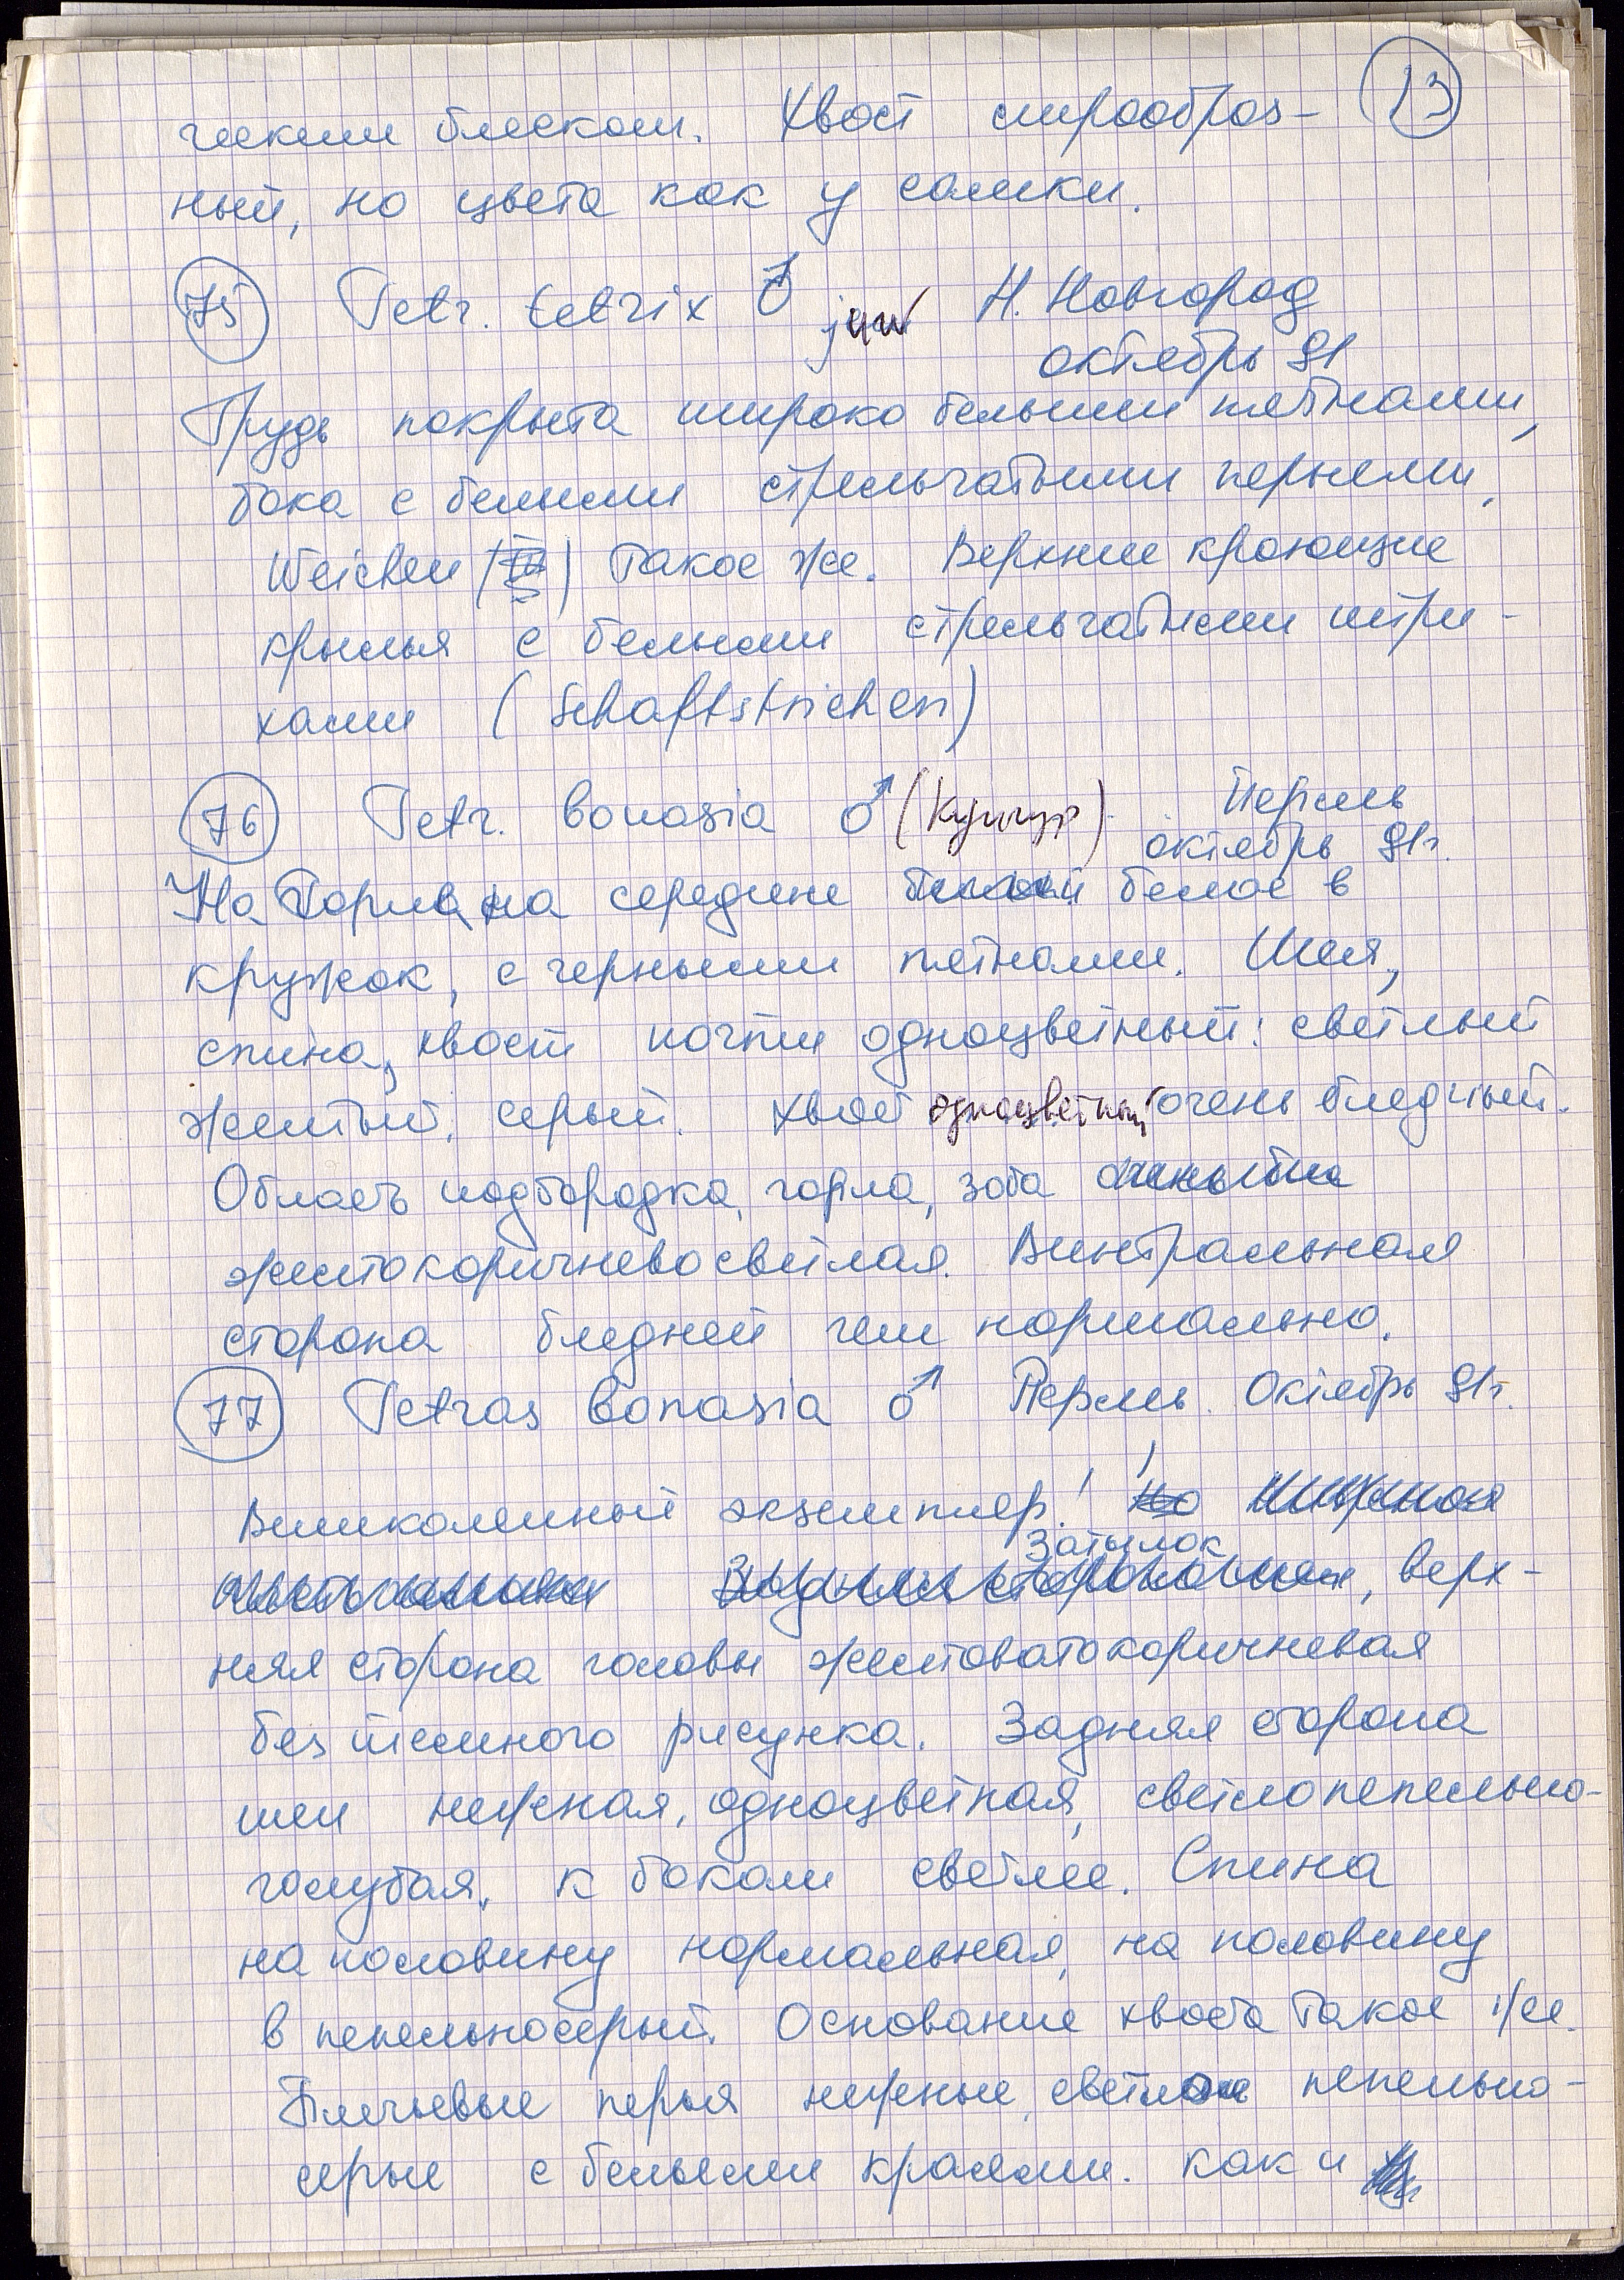 13
ческим блеском. Хвост лирообраз-
ный, но цвета как у самки.
75 Tetr. tetrix ♂ juv Н. Новгород
октябрь 91
Грудь покрыта широко белыми пятнами,
бока с белыми стрельчатыми перьями,
Weichen ( ) такое же. Верхние кроющие
крылья с белыми стрельчатыми штри-
хами (Schaftstrichen)
76 Tetr. bonasia ♂ (Кунгур). Пермь
октябрь 91г.
На горла на середине белое в
кружок, с черными пятнами. Шея,
спина, хвост почти одноцветный: светлый
желтый, серый. Хвост одноцветный очень бледный.
Область подбородка, горла, зоба
желтокоричневосветлая. Винтральная
сторона бледней чем нормально.
77 Tetras bonasia ♂ Пермь. Октябрь 91г.
Виликолепный экземпляр!
Затылок
, верх-
няя сторона головы желтоватокоричневая
без темного рисунка. Задняя сторона
шеи нежная, одноцветная, светлопепельно-
голубая, к бокам светлее. Спина
на половину нормальная, на половину
в пепельносерый. Основание хвоста такое же.
Плечевые перья нежные, светло пепельно-
серые с белыми краями. как и